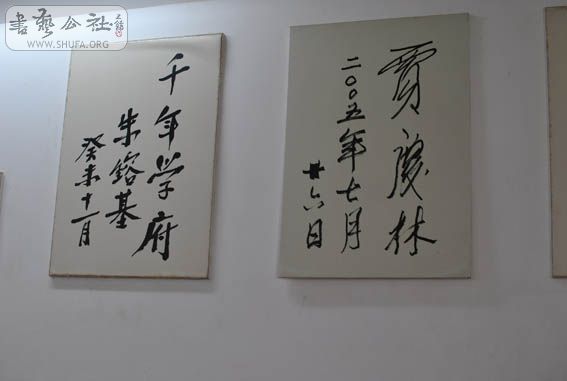 書藝公社
WWW.SHUFA.ORG
千年学府
朱鎔基
癸未十一月
贾庆林
二〇〇五年七月
廿六日